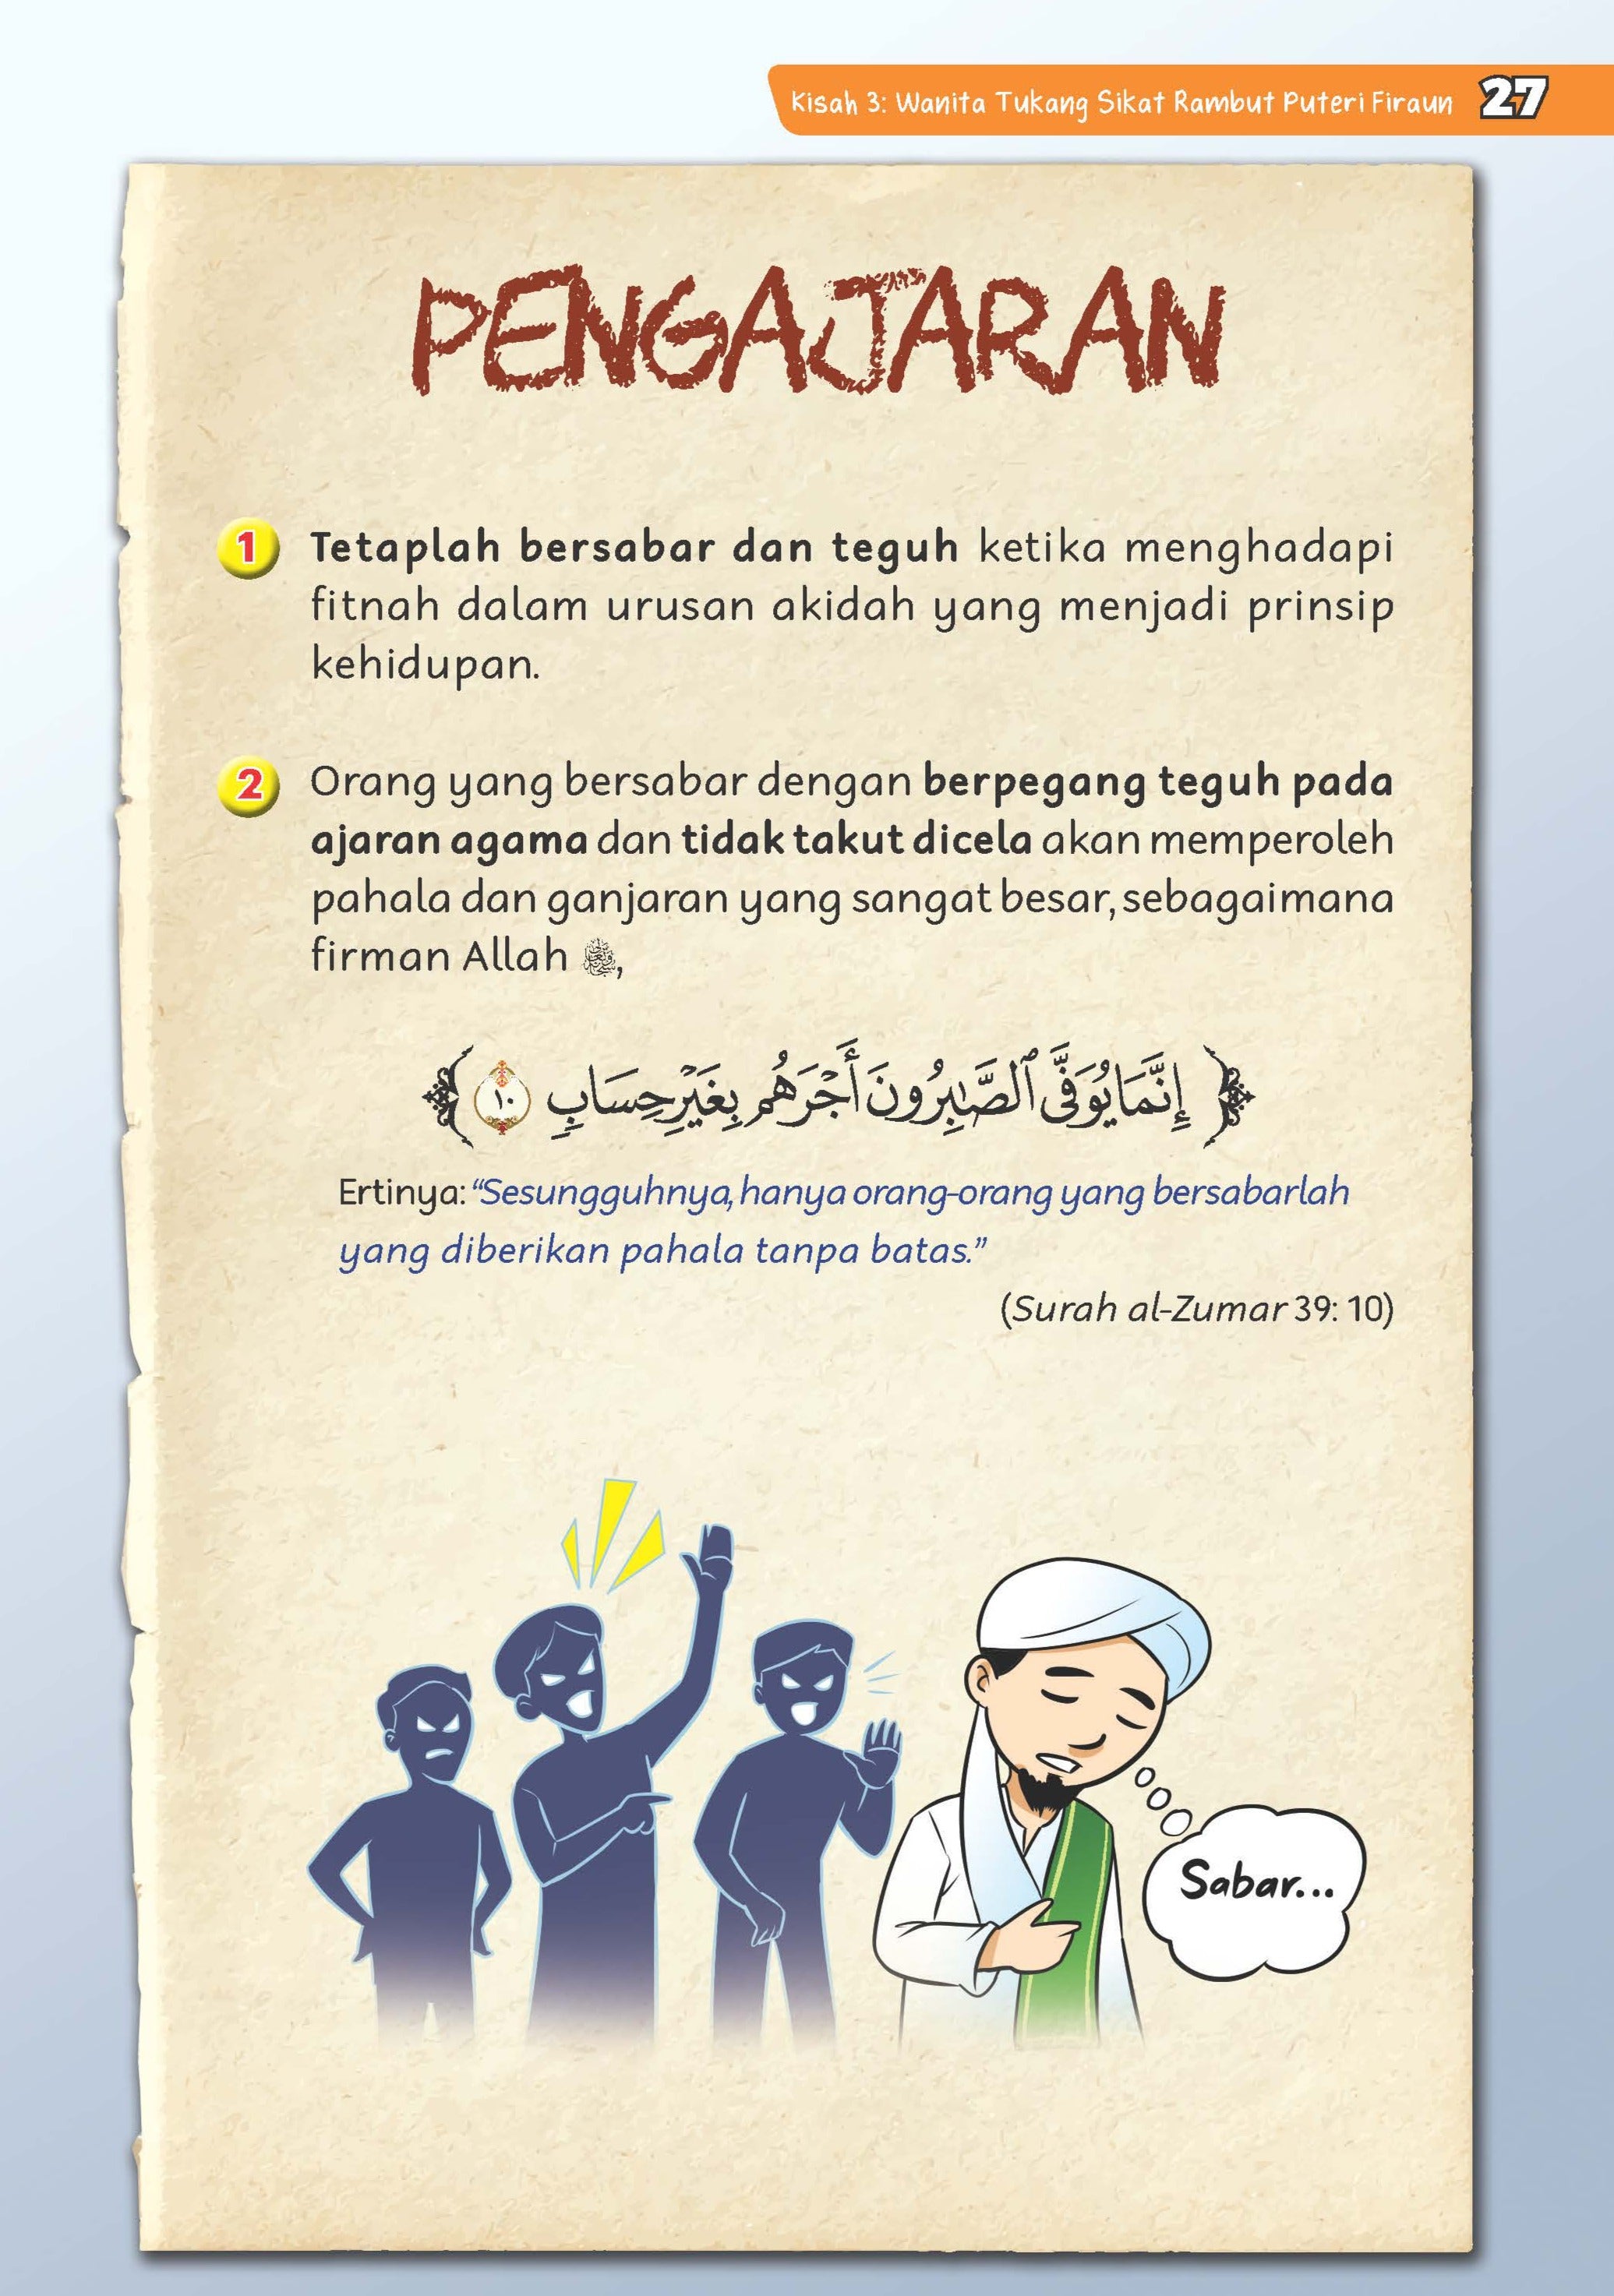 Kisah 3: Wanita Tukang Sikat Rambut Puteri Firaun 27
PENGAJARAN
1 Tetaplah bersabar dan teguh ketika menghadapi
fitnah dalam urusan akidah yang menjadi prinsip
kehidupan.
2 Orang yang bersabar dengan berpegang teguh pada
ajaran agama dan tidak takut dicela akan memperoleh
pahala dan ganjaran yang sangat besar, sebagaimana
firman Allah ,
﴿ إِنَّمَا يُوَفَّى ٱلصَّٰبِرُونَ أَجْرَهُم بِغَيْرِ حِسَابٍ ١٠ ﴾
Ertinya: “Sesungguhnya, hanya orang-orang yang bersabarlah
yang diberikan pahala tanpa batas.”
(Surah al-Zumar 39: 10)
Sabar...